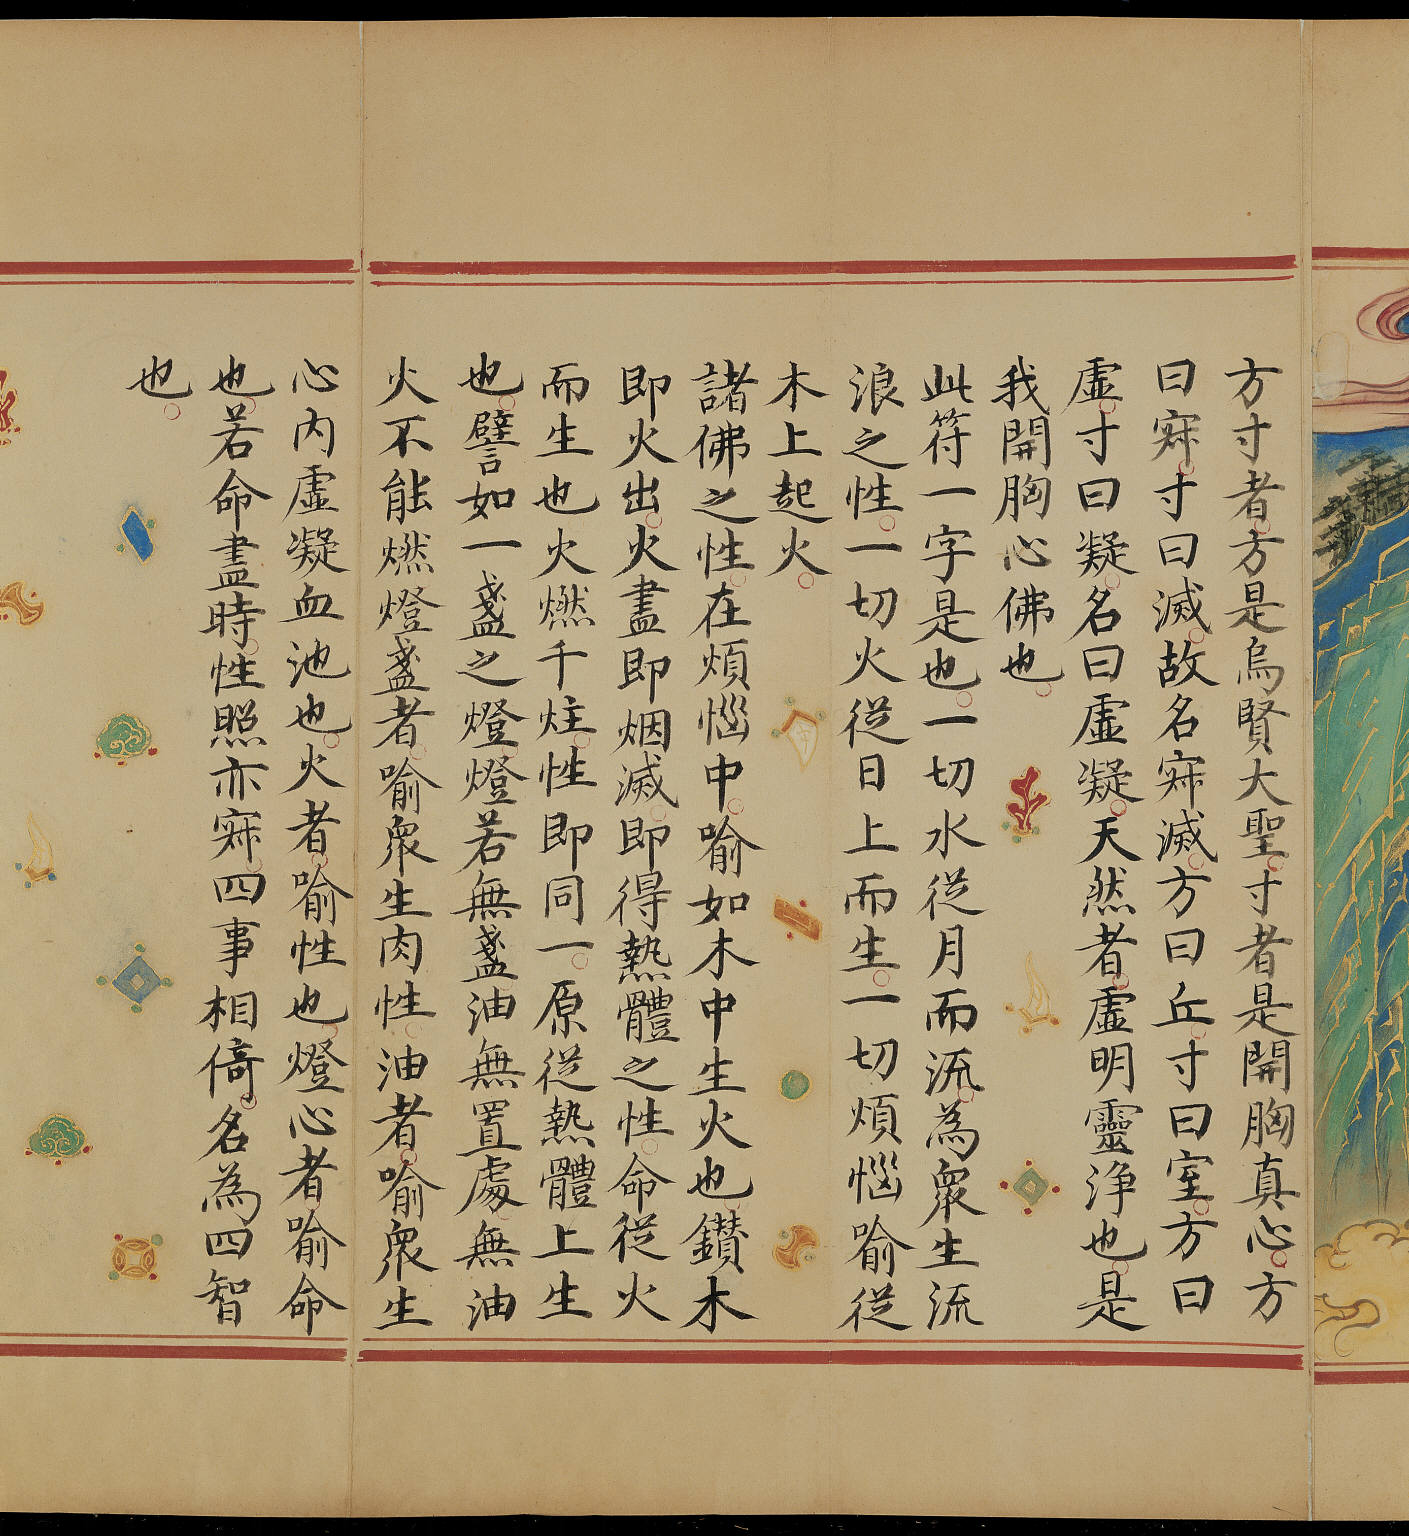 方寸者方是烏賢大聖寸者是開胸真心方
曰㝥寸曰滅故名㝥滅方曰丘寸曰室方曰
虛寸曰凝名曰虛凝天然者虛明靈淨也是
我開胸心佛也
此符一字是也一切水從月而流為衆生流
浪之性一切火從日上而生一切煩惱喻從
木上起火
諸佛之性在煩惱中喻如木中生火也鑚木
即火出火盡即烟滅即得熱體之性命從火
而生也火燃千炷性即同一原從熱體上生
也譬如一盞之燈燈若無盞油無置處無油
火不能燃燈盞者喻衆生肉性油者喻衆生
心內虛凝血池也火者喻性也燈心者喻命
也若命盡時性照亦㝥四事相倚名為四智
也